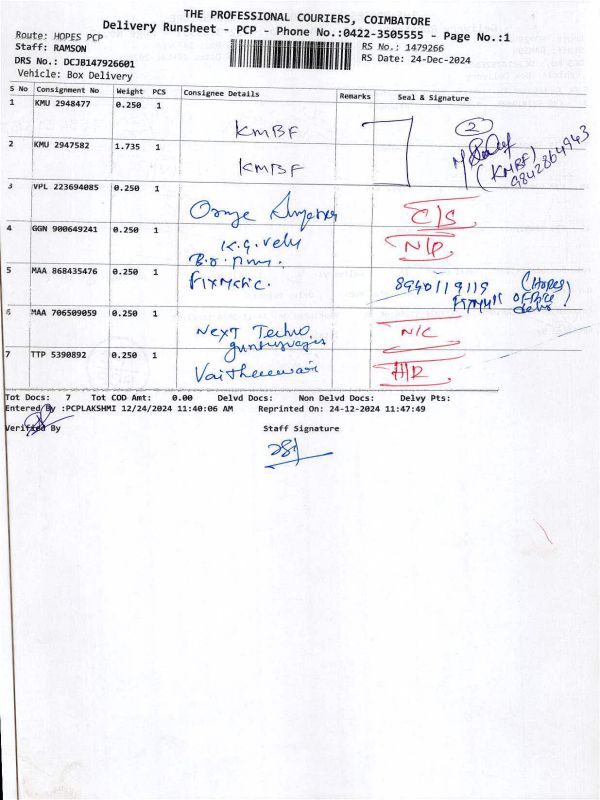 THE PROFESSIONAL COURIERS, COIMBATORE
Delivery Runsheet - PCP - Phone No.:0422-3505555 - Page No.:1
Route: HOPES PCP
Staff: RAMSON
RS No.: 1479266
DRS No.: DCJB147926601
RS Date: 24-Dec-2024
Vehicle: Box Delivery
S No Consignment No Weight PCS Consignee Details Remarks Seal & Signature
1 KMU 2948477 0.250 1 KMBF 2
2 KMU 2947582 1.735 1 KMBF (KMBF) 9842864943
3 VPL 223694085 0.250 1 Orange C/S
4 GGN 900649241 0.250 1 K.G. Velu N/P
5 MAA 868435476 0.250 1 Fixmatic. 8940119119 (Hopes office
6 MAA 706509059 0.250 1 Next Techno N/C
7 TTP 5390892 0.250 1 H/R
Tot Docs: 7 Tot COD Amt: 0.00 Delvd Docs: Non Delvd Docs: Delvy Pts:
Entered By :PCPLAKSHMI 12/24/2024 11:40:06 AM Reprinted On: 24-12-2024 11:47:49
Verified By Staff Signature